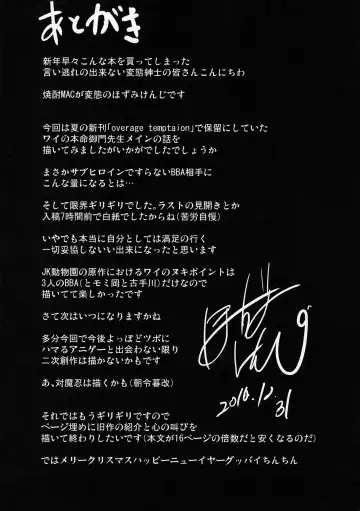 あとがき
新年早々こんな本を買ってしまった
言い逃れの出来ない変態紳士の皆さんこんにちわ
焼酎MACが変態のほずみけんじです
今回は夏の新刊「overage temptaion」で保留にしていた
ワイの本命御門先生メインの話を
描いてみましたがいかがでしたでしょうか
まさかサブヒロインですらないBBA相手に
こんな量になるとは…
そして限界ギリギリでした。ラストの見開きとか
入稿7時間前で白紙でしたからね(苦労自慢)
いやでも本当に自分としては満足の行く
一切妥協しないいい出来になったと思います
JK動物園の原作におけるワイのヌキポイントは
3人のBBA(とモミ岡と古手川)だけなので
描いてて楽しかったです
さて次はいつになりますかね
多分今回で今後よっぽどツボに
ハマるアニゲーと出会わない限り
二次創作は描かないかもです
あ、対魔忍は描くかも(朝令暮改)
それではもうギリギリですので
ページ埋めに旧作の紹介と心の叫びを
描いて終わりしたいです(本文が16ページの倍数だと安くなるのだ)
ではメリークリスマスハッピーニューイヤーグッバイちんちん
2016.12.31